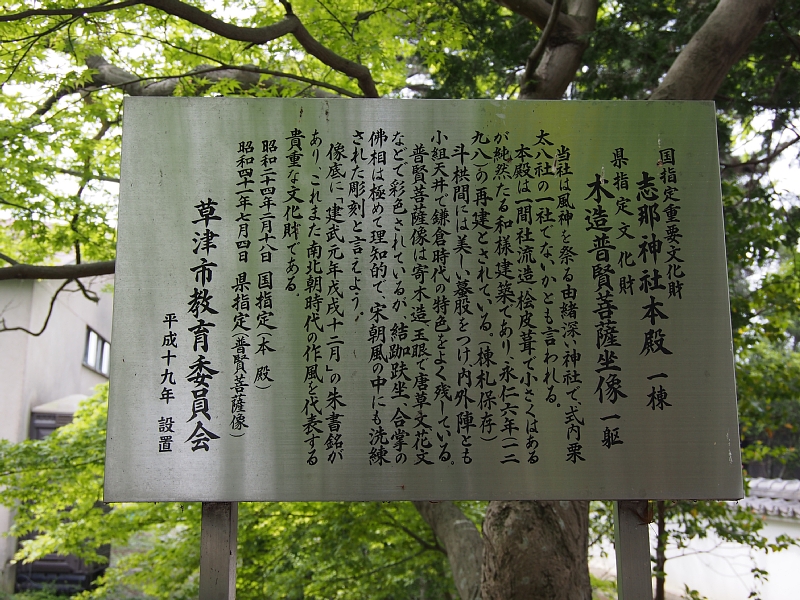 国指定重要文化財
志那神社本殿 一棟
県指定文化財
木造普賢菩薩坐像 一躯
当社は風神を祭る由緒深い神社で、式内栗
太八社の一社でないかとも言われる。
本殿は一間社流造、桧皮葺で小さくはある
が純然たる和様建築であり、永仁六年(一二
九八)の再建とされている。(棟札保存)
斗栱間には美しい蟇股をつけ内外陣とも
小組天井で鎌倉時代の特色をよく残している。
普賢菩薩像は寄木造、玉眼で唐草文花文
などで彩色されているが、結跏趺坐、合掌の
佛相は極めて理知的で、宋朝風の中にも洗練
された彫刻と言えよう。
像底に「建武元年戊戌十二月」の朱書銘が
あり、これまた南北朝時代の作風を代表する
貴重な文化財である。
昭和二十四年二月十八日 国指定(本殿)
昭和四十一年七月四日 県指定(普賢菩薩像)
草津市教育委員会
平成十九年 設置